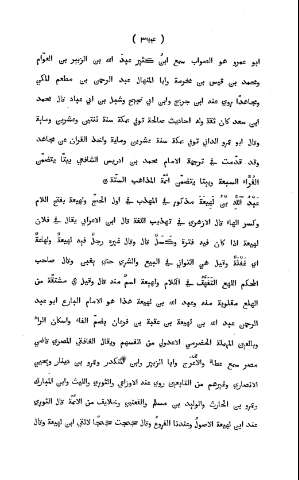 ( ٣٦٤ )
ابو عمرو هو الصواب سمع ابن كثير عبد الله بن الزبير بن العوام
ومحمد بن قيس بن مخرمة وابا المنهال عبد الرحمن بن مطعم المكى
ومجاهدا روى عنه ابن جريج وابن ابى نجيح وشبل بن ابى عباد قال محمد
ابن سعد كان ثقة وله احاديث صالحة توفى بمكة سنة ثنتين وعشرين وماية
وقال ابو عمرو الدانى توفى بمكة سنة عشرين وماية واخذ القران عن مجاهد
وقد قدمت فى ترجمة الامام محمد بن ادريس الشافعى بيتا يتضمن
القراء السبعة وبيتا يتضمن ائمة المذاهب الستة
عبد الله بن لهيعة مذكور فى المهذب فى اول الحج ولهيعة بفتح اللام
وكسر الهاء قال الازهرى فى تهذيب اللغة قال ابن الاعرابى يقال فى فلان
لهيعة اذا كان فيه فترة وكسل قال وقال غيره رجل فيه لهيعة ولهاعة
اى غفلة وقيل هى التوانى فى البيع والشرى حتى يغبن وقال صاحب
المحكم اللهع التفيهق فى الكلام ولهيعة اسم منه قال وقيل هى مشتقة من
الهلع مقلوبة منه وعبد الله بن لهيعة هذا هو الامام البارع ابو عبد
الرحمن عبد الله بن لهيعة بن عقبة بن فرعان بضم الفاء واسكان الراء
وبالعين المهملة الحضرمى الاعدول من انفسهم ويقال الغافقى المصرى قاضى
مصر سمع عطاء والاعرج وابا الزبير وابن المنكدر وعمرو بن دينار ويحيى
الانصارى وغيرهم من التابعين روى عنه الاوزاعى والثورى والليث وابن المبارك
وعمرو بن الحارث والوليد بن مسلم والقعنبى وخلايق من الائمة قال الثورى
عند ابن لهيعة الاصول وعندنا الفروع وقال حججت حججا لالقى ابن لهيعة وقال